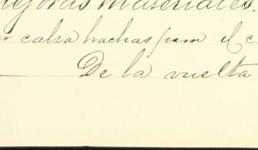 mejoras materiales.
calza hachas para el c
De la vuelta